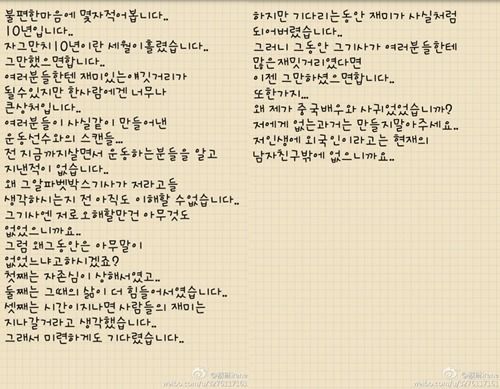 불편한마음에 몇자적어봅니다..
10년입니다..
자그만치 10년이란 세월이 흘렀습니다..
그만했으면합니다..
여러분들한텐 재미있는얘깃거리가
될수있지만 한사람에겐 너무나
큰상처입니다..
여러분들이 사실같이 만들어낸
운동선수와의 스캔들...
전 지금까지살면서 운동하는분들을 알고
지낸적이 없습니다..
왜 그알파벳박스기사가 저라고들
생각하시는지 전 아직도 이해할 수없습니다..
그기사엔 저로오해할만건 아무것도
없었으니까요..
그럼 왜그동안은 아무말이
없었느냐고하시겠죠?
첫째는 자존심이 상해서였고..
둘째는 그때의 삶이 더 힘들어서였습니다..
셋째는 시간이지나면 사람들의 재미는
지나갈거라고 생각했습니다..
그래서 미련하게도 기다렸습니다..
하지만 기다리는동안 재미가 사실처럼
되어버렸습니다..
그러니 그동안 그기사가 여러분들한테
많은재밋거리였다면
이젠 그만하셨으면합니다..
또한가지...
왜 제가 중국배우와 사귀었었습니까?
저에게 없는과거는 만들지말아주세요..
저인생에 외국인이라고는 현재의
남자친구밖에 없으니까요..